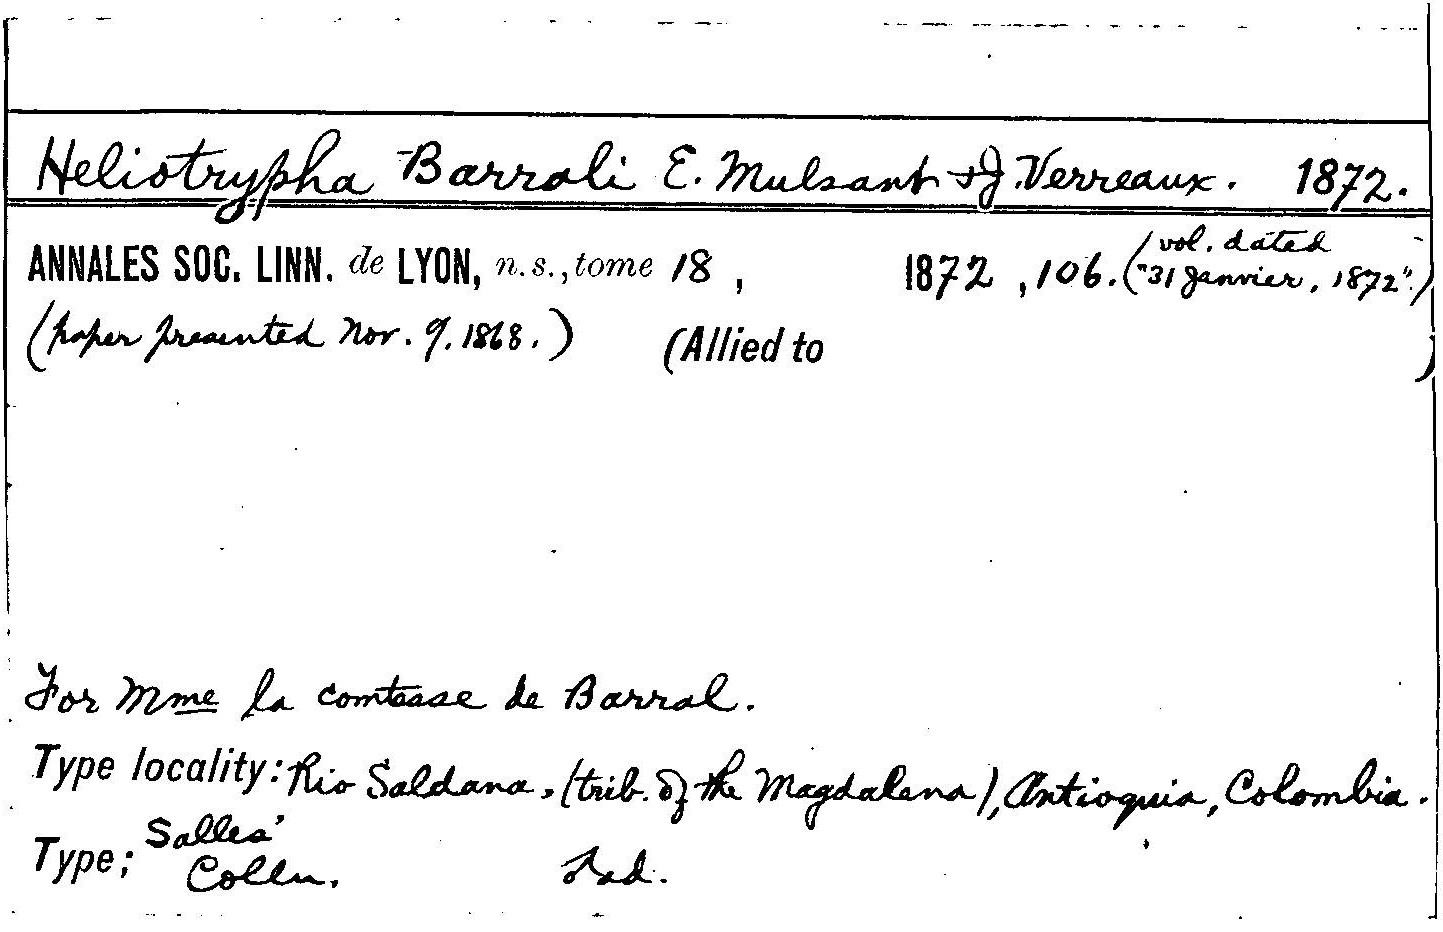 Heliotrypha Barrali E. Mulsant & J. Verreaux. 1872.
ANNALES SOC. LINN. de LYON, n.s., tome 18, 1872, 106. (vol. dated "31 Janvier, 1872".)
(paper presented Nov. 9, 1868.) (Allied to )
For Mme la comtesse de Barral.
Type locality: Rio Saldana, (trib. of the Magdalena), Antioquia, Colombia.
Type; Salles' Colln. Ad.